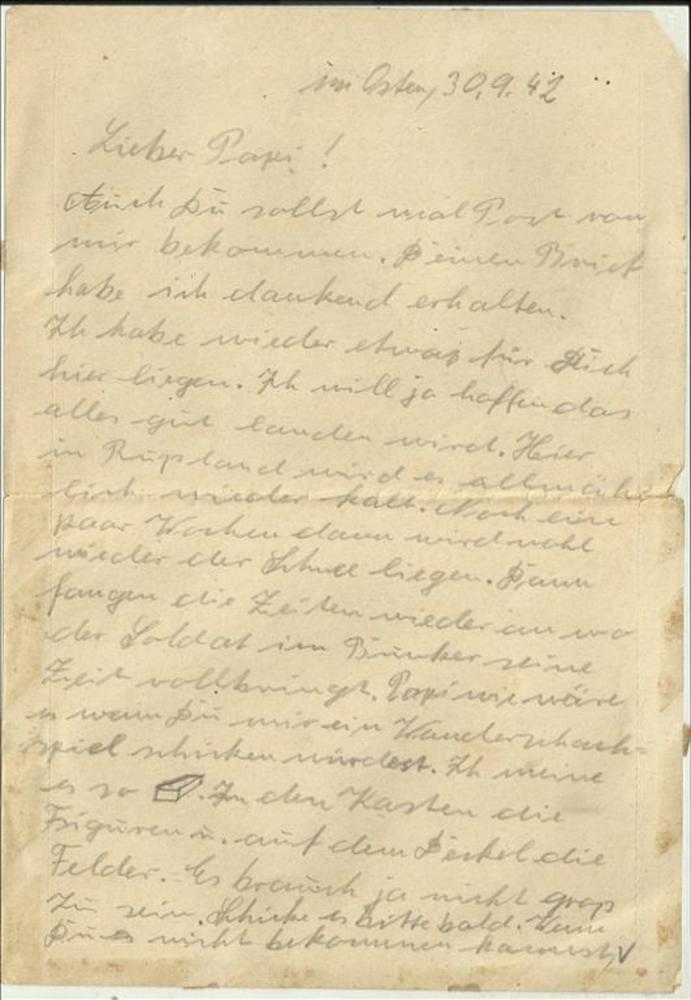 im Osten, 30.9.42
Lieber Papi!
Auch Du sollst mal Post von
mir bekommen. Deinen Brief
habe ich dankend erhalten.
Ich habe wieder etwas für Dich
hier liegen. Ich will ja hoffen das
alles gut landen wird. Hier
in Russland wird es allmäh-
lich wieder kalt. Noch ein
paar Wochen dann wird wohl
wieder der Schnee liegen. Dann
fangen die Zeiten wieder an wo
der Soldat im Bunker seine
Zeit vollbringt. Papi wie wäre
es wenn Du mir ein Wanderschach-
spiel schicken würdest. Ich meine
es so . In den Kasten die
Figuren u. auf dem Deckel die
Felder. Es brauch ja nicht gross
zu sein. Schicke es bitte bald. Wenn
Du es nicht bekommen kannst,